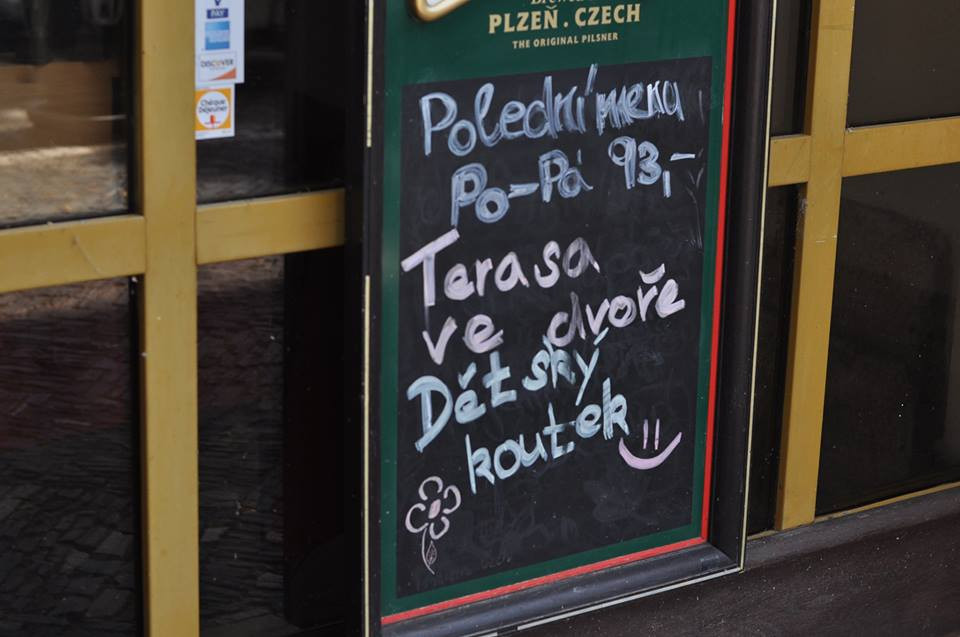 PAY
DISCOVER
Chèque
Déjeuner
Brewed in
PLZEŇ . CZECH
THE ORIGINAL PILSNER
Polední menu
Po-Pá 93,-
Terasa
ve dvoře
Dětský
koutek